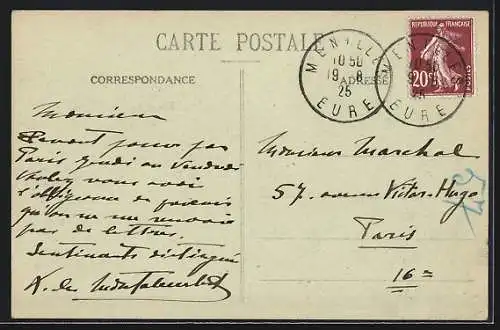 CARTE POSTALE
CORRESPONDANCE
ADRESSE
MENILLES
10 50
19 - 8
25
EURE
MENILLES
EURE
REPUBLIQUE FRANÇAISE
POSTES
20c
Monsieur
Devant passer par
Paris Jeudi ou Vendredi
vous avoir
l'obligeance de prévenir
qu'on ne me renvoie
pas de lettres.
Sentiments distingués
Monsieur Marchal
57, avenue Victor-Hugo
Paris
16e